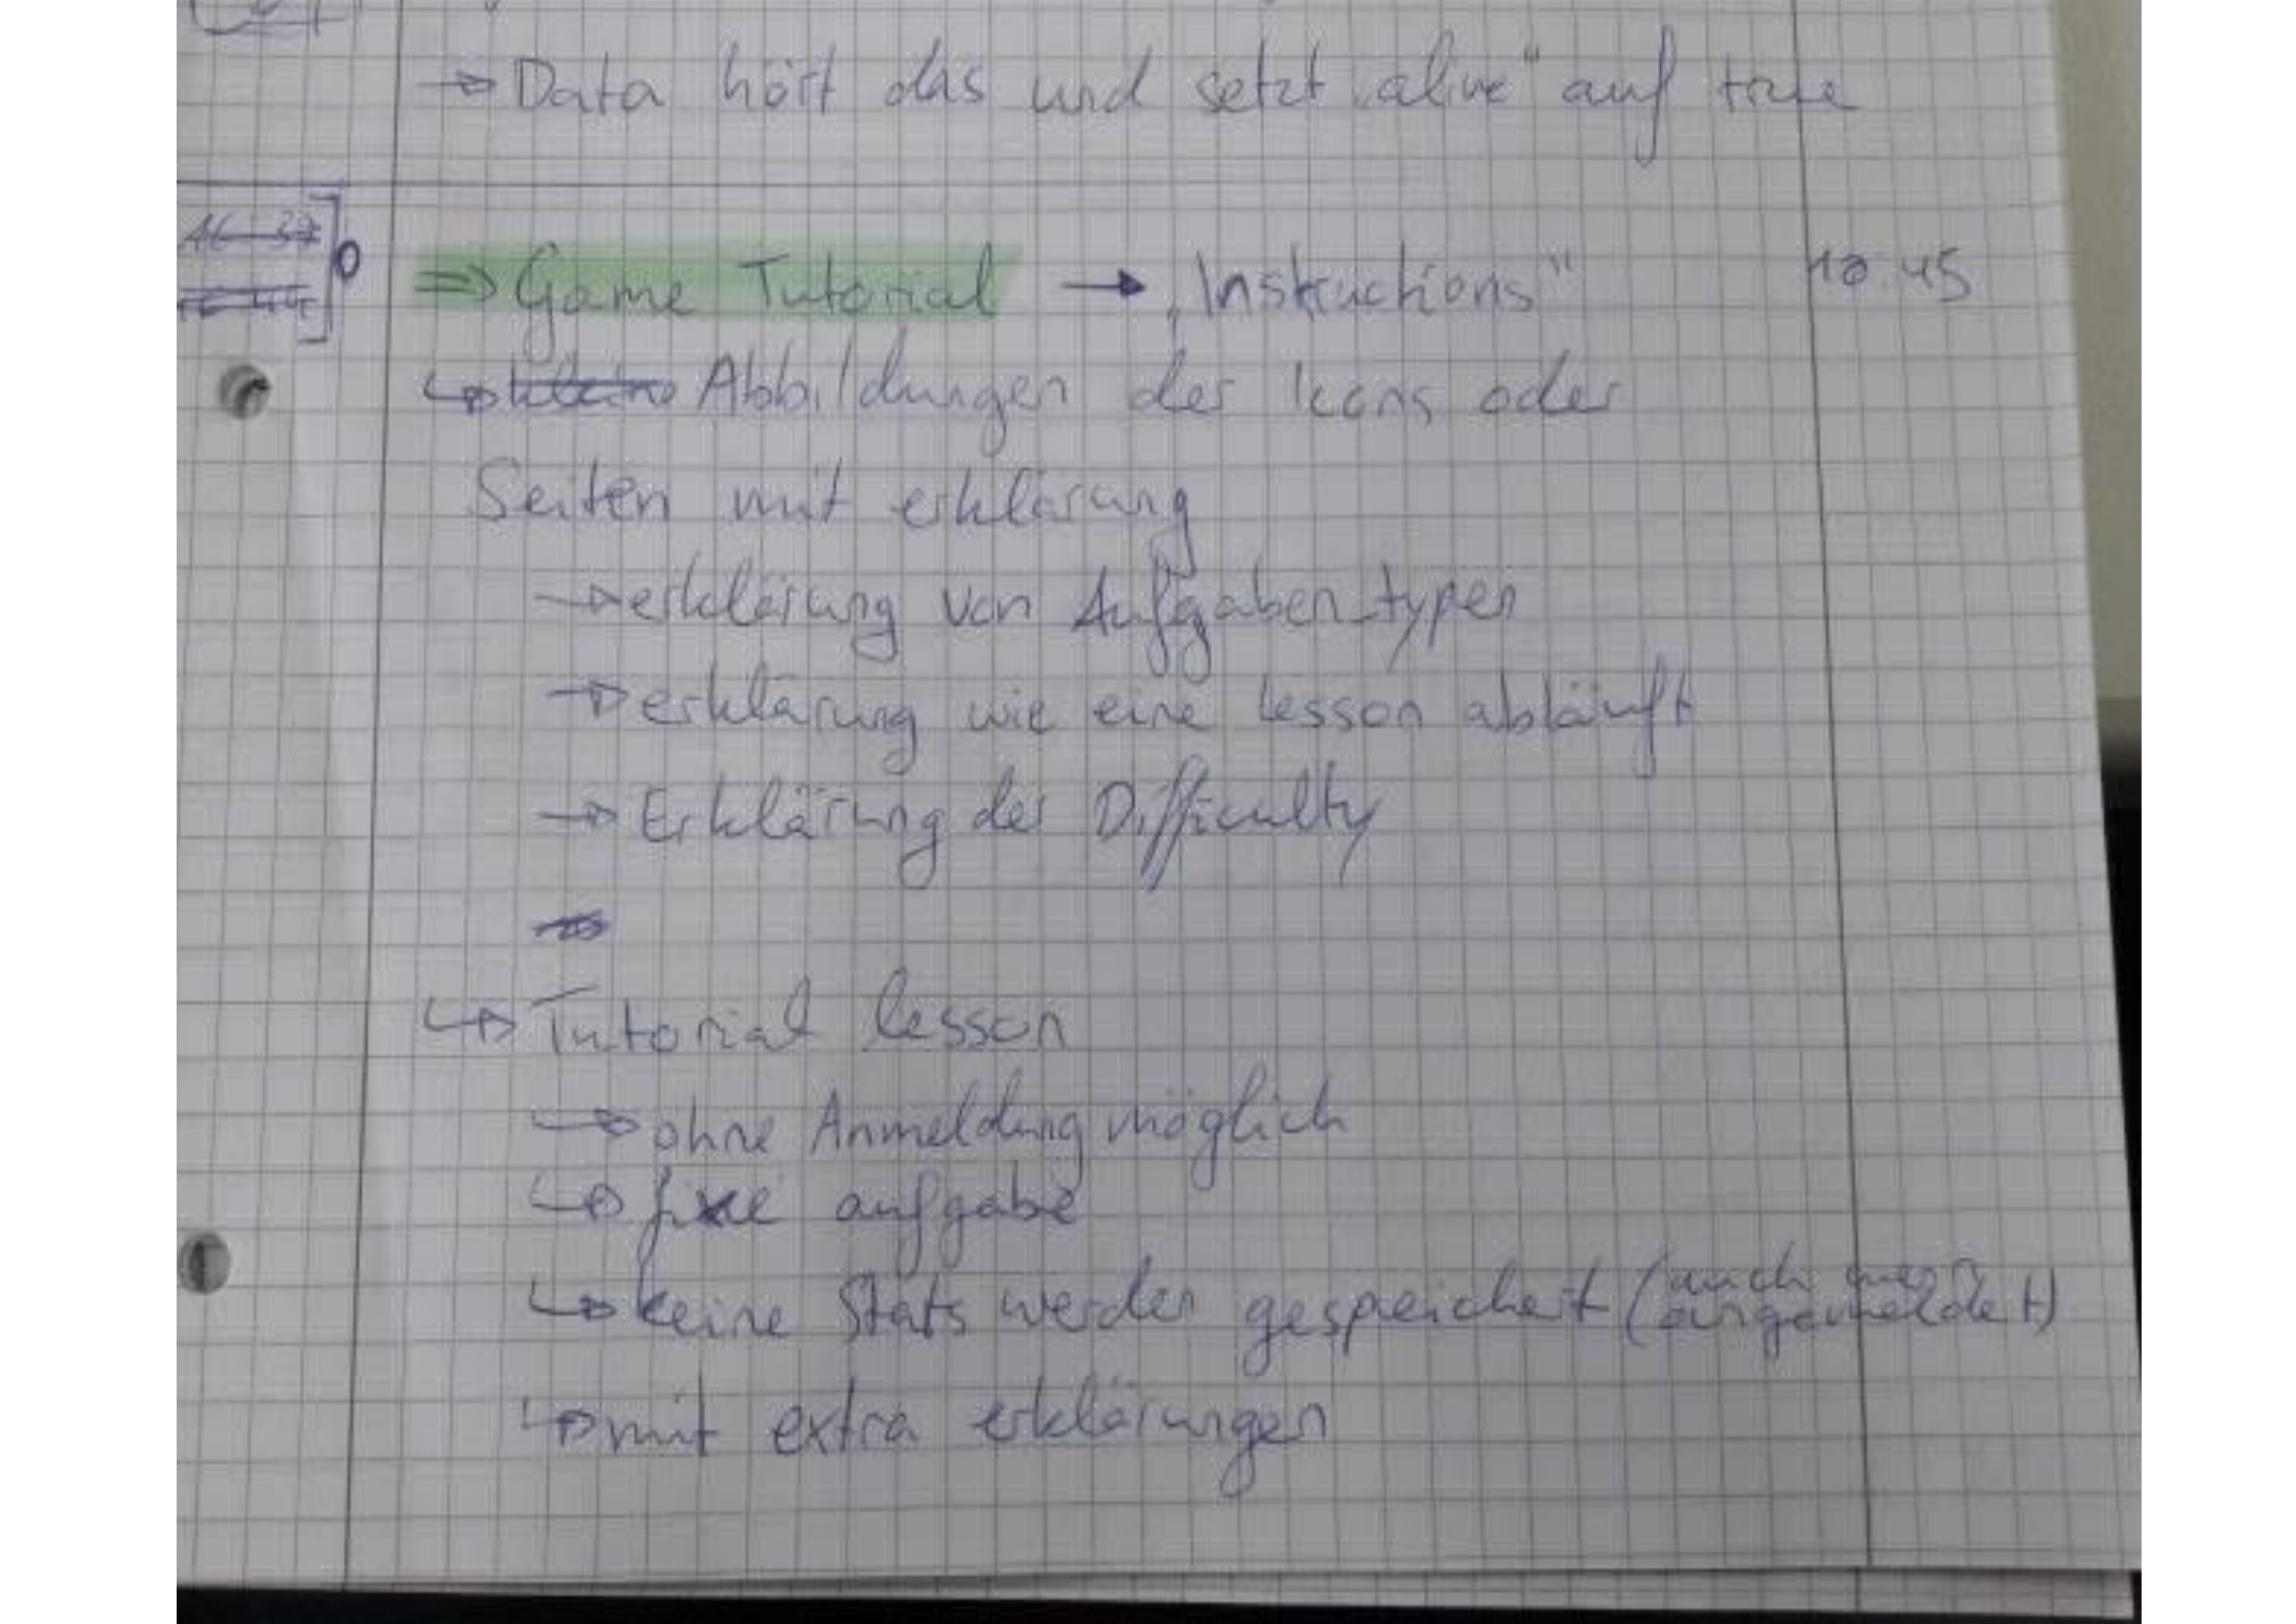 → Data hört das und setzt „alive“ auf true
⇒ Game Tutorial → „Instructions“
↳ Abbildungen der Icons oder
Seiten mit erklärung
→ erklärung von Aufgaben_typen
→ erklärung wie eine lesson abläuft
→ Erklärung der Difficulty
↳ Tutorial lesson
↳ ohne Anmeldung möglich
↳ fixe aufgabe
↳ keine Stats werden gespreichert (auch angemeldet)
↳ mit extra erklärungen